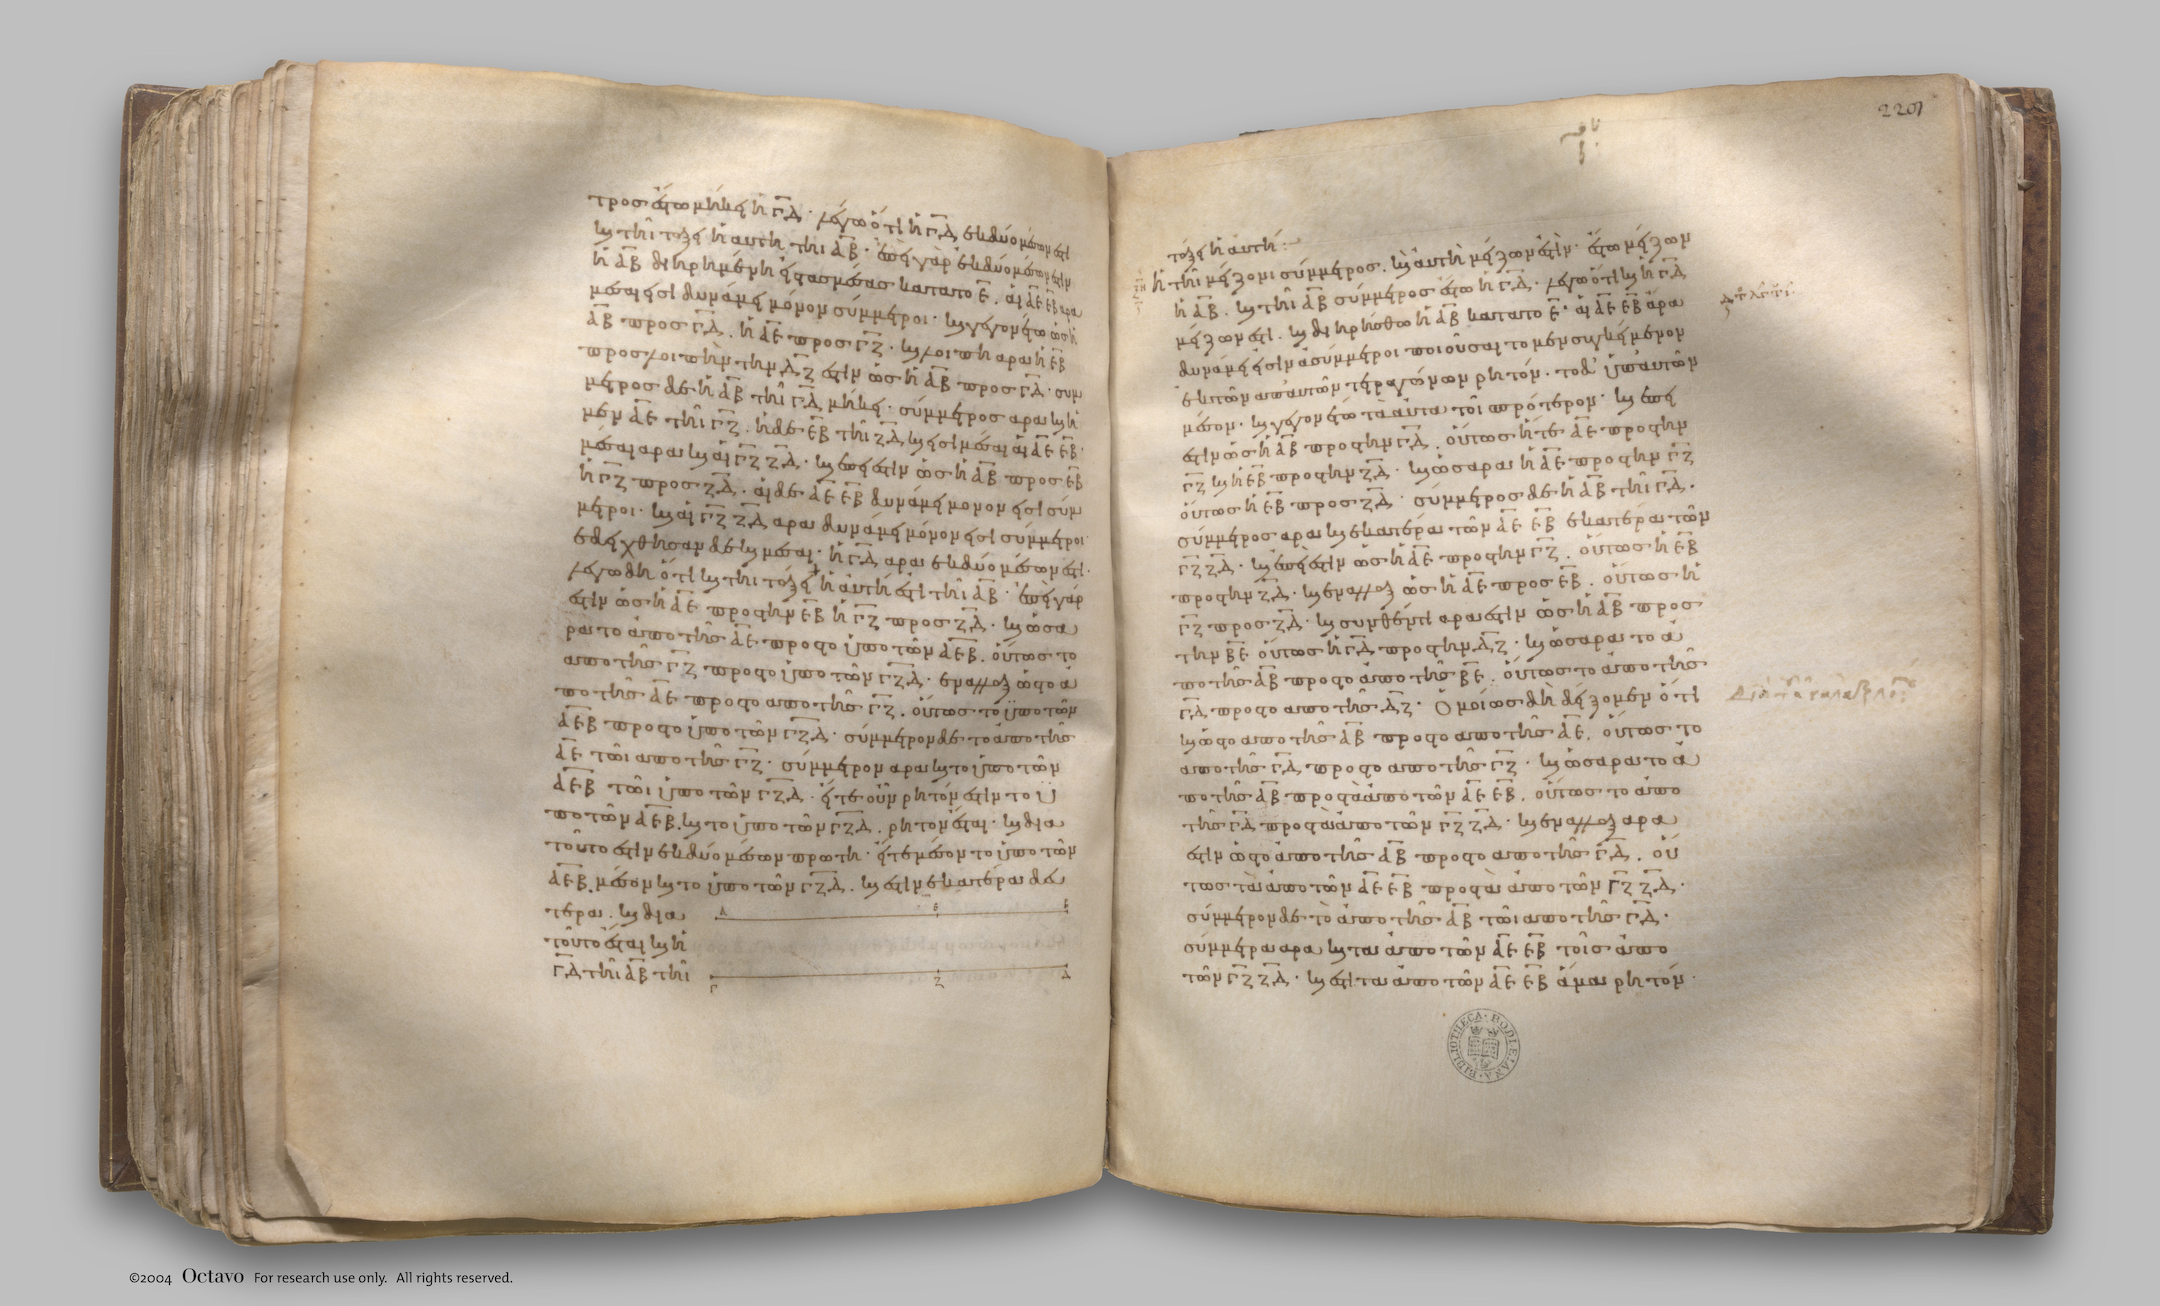 τρος ἔστω μήκει ἡ ΓΔ· λέγω ὅτι ἡ ΓΔ ἐκ δύο μέσων ἐστὶ
καὶ τῆι τάξει ἡ αυτη τηι ΑΒ· ἐπεὶ γὰρ ἐκ δύο μέσων ἐστὶν
ἡ ΑΒ διηρημένη εἰς τας μέσας κατα το Ε. αἱ ΑΕ ΕΒ αρα
μέσαι εἰσὶ δυνάμει μόνον σύμμετροι· καὶ γεγονέτω ὡς ἡ
ΑΒ προς ΓΔ. ἡ ΑΕ προς ΓΖ. καὶ λοιπη αρα ἡ ΕΒ
προς λοιπὴν την ΔΖ ἐστὶν ὡς ἡ ΑΒ προς ΓΔ· συμ
μετρος δε ἡ ΑΒ τῆι ΓΔ μηκει· σύμμετρος αρα καὶ ἡ
μεν ΑΕ τῆι ΓΖ. ἡ δε ΕΒ τῆι ΖΔ καὶ εἰσὶ μέσαι αἱ ΑΕ ΕΒ·
μέσαι αρα καὶ αἱ ΓΖ ΖΔ· καὶ ἐπεί ἐστιν ὡς ἡ ΑΒ προς ΕΒ
ἡ ΓΖ προς ΖΔ. αἱ δε ΑΕ ΕΒ δυνάμει μονον εἰσὶ σύμ
μετροι· καὶ αἱ ΓΖ ΖΔ αρα δυνάμει μόνον εἰσὶ σύμμετροι
εδείχθησαν δε καὶ μέσαι· ἡ ΓΔ αρα εκ δύο μέσων ἐστί·
λέγω δη ὅτι καὶ τηι τάξει ἡ ἀυτή ἐστι τῆι ΑΒ· ἐπεὶ γάρ
ἐστιν ὡς ἡ ΑΕ προς την ΕΒ ἡ ΓΖ προς ΖΔ· καὶ ὡς α
ρα το ἀπο τῆς ΑΕ προς το ὑπο τῶν ΑΕΒ. οὕτως το
απο τῆς ΓΖ προς το ὑπο τῶν ΓΖΔ· εναλλαξ ὡς το ἀ
πο τῆς ΑΕ προς το απο τῆς ΓΖ. οὕτως το ὑπο τῶν
ΑΕΒ προς το ὑπο τῶν ΓΖΔ· σύμμετρον δε το ἀπο τῆς
ΑΕ τῶι απο τῆς ΓΖ· σύμμετρον αρα καὶ το ὑπο τῶν
ΑΕΒ τῶι ὑπο τῶν ΓΖΔ· εἴτε οὖν ρητόν ἐστιν το ὑ
πο τῶν ΑΕΒ. καὶ το ὑπο τῶν ΓΖΔ. ρητον ἐσται· καὶ δια
τοῦτο ἐστὶν ἐκ δύο μέσων πρωτη· εἴτε μέσον το ὑπο τῶν
ΑΕΒ. μέσον καὶ το ὑπο τῶν ΓΖΔ. καὶ ἐστὶν ἑκατέρα δευ
τέρα. καὶ δια
τοῦτο ἔσται καὶ ἡ
ΓΔ τῆι ΑΒ τῆι
Α Ε Β
Γ Ζ Δ
220
τάξει ἡ ἀυτή:
ἡ τῆι μείζονι σύμμετρος. καὶ ἀυτὴ μείζων ἐστίν· ἔστω μείζων
ἡ ΑΒ. καὶ τῆι ΑΒ σύμμετρος ἔστω ἡ ΓΔ· λέγω ὅτι καὶ ἡ ΓΔ
μείζων ἐστί. καὶ διηρήσθω ἡ ΑΒ κατα το Ε· αἱ ΑΕ ΕΒ ἄρα
δυνάμει εἰσὶν ἀσύμμετροι ποιοῦσαι το μεν συγκείμενον
ἐκ τῶν ἀπ αυτῶν τετραγώνων ρητόν. το δ' ὑπ αυτῶν
μέσον· καὶ γεγονέτω τὰ ἀυτα τῶι πρότερον· καὶ ἐπεί
ἐστιν ὡς ἡ ΑΒ προς την ΓΔ. οὕτως ἡ τε ΑΕ προς την
ΓΖ καὶ ἡ ΕΒ προς την ΖΔ· καὶ ὡς αρα ἡ ΑΕ προς την ΓΖ
οὕτως ἡ ΕΒ προς ΖΔ· σύμμετρος δε ἡ ΑΒ τῆι ΓΔ·
σύμμετρος αρα καὶ ἑκατέρα τῶν ΑΕ ΕΒ ἑκατέρα τῶν
ΓΖ ΖΔ· καὶ ἐπεί ἐστιν ὡς ἡ ΑΕ προς την ΓΖ. οὕτως ἡ ΕΒ
προς την ΖΔ· καὶ εναλλαξ ὡς ἡ ΑΕ προς ΕΒ. οὕτως ἡ
ΓΖ προς ΖΔ· καὶ συνθέντι αρα ἐστὶν ὡς ἡ ΑΒ προς
την ΒΕ οὕτως ἡ ΓΔ προς την ΔΖ· καὶ ὡς αρα το ἀ
πο τῆς ΑΒ προς το ἀπο τῆς ΒΕ. οὕτως το ἀπο τῆς
ΓΔ προς το απο τῆς ΔΖ· Ὁμοίως δὴ δείξομεν ὅτι
καὶ ὡς το απο τῆς ΑΒ προς το απο τῆς ΑΕ. οὕτως το
απο τῆς ΓΔ προς το απο τῆς ΓΖ· καὶ ὡς αρα το ἀ
πο τῆς ΑΒ προς τὰ ἀπο τῶν ΑΕ ΕΒ. οὕτως το ἀπο
τῆς ΓΔ προς τὰ ἀπο τῶν ΓΖ ΖΔ· καὶ εναλλαξ αρα
ἐστὶν ὡς το ἀπο τῆς ΑΒ προς το απο τῆς ΓΔ. οὕ
τως τὰ ἀπο τῶν ΑΕ ΕΒ προς τὰ ἀπο τῶν ΓΖ ΖΔ·
σύμμετρον δε τὸ ἀπο τῆς ΑΒ τῶι απο τῆς ΓΔ·
σύμμετρα αρα καὶ τα ἀπο τῶν ΑΕ ΕΒ τοῖς ἀπο
τῶν ΓΖ ΖΔ· καὶ ἐστὶ τα ἀπο τῶν ΑΕ ΕΒ ἅμα ρητόν·
BIBLIOTHECA BODLEIANA
©2004 Octavo For research use only. All rights reserved.